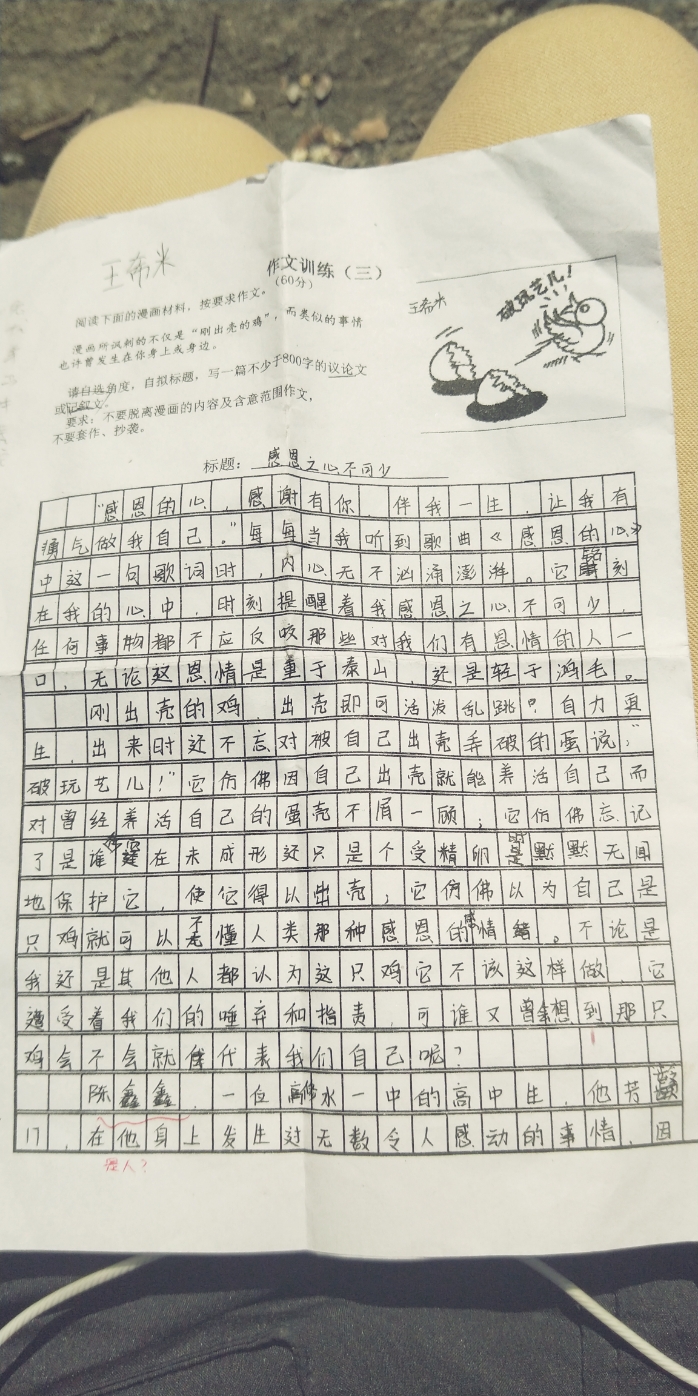 王希米
作文训练（三）
（60分）
阅读下面的漫画材料，按要求作文。
漫画所讽刺的不仅是“刚出壳的鸡”，而类似的事情
也许曾发生在你身上或身边。
请自选角度，自拟标题，写一篇不少于800字的议论文
或记叙文。
要求：不要脱离漫画的内容及含意范围作文，
不要套作、抄袭。
王希米
破玩艺儿！
标题：感恩之心不可少
“感恩的心，感谢有你，伴我一生，让我有
勇气做我自己。”每每当我听到歌曲《感恩的心》
中这一句歌词时，内心无不汹涌澎湃。它铭刻
在我的心中，时刻提醒着我感恩之心不可少，
任何事物都不应反咬那些对我们有恩情的人一
口，无论这恩情是重于泰山，还是轻于鸿毛。
刚出壳的鸡，出壳即可活泼乱跳？自力更
生，出来时还不忘对被自己出壳弄破的蛋说：“
破玩艺儿！”它仿佛因自己出壳就能养活自己而
对曾经养活自己的蛋壳不屑一顾；它仿佛忘记
了是谁在它在未成形还只是个受精卵时默默无闻
地保护它，使它得以出壳；它仿佛以为自己是
只鸡就可以不懂人类那种感恩的情绪。不论是
我还是其他人都认为这只鸡它不该这样做，它
遭受着我们的唾弃和指责，可谁又曾想到那只
鸡会不会就代表我们自己呢？
陈鑫鑫，一位修水一中的高中生，他芳龄
17，在他身上发生过无数令人感动的事情，因